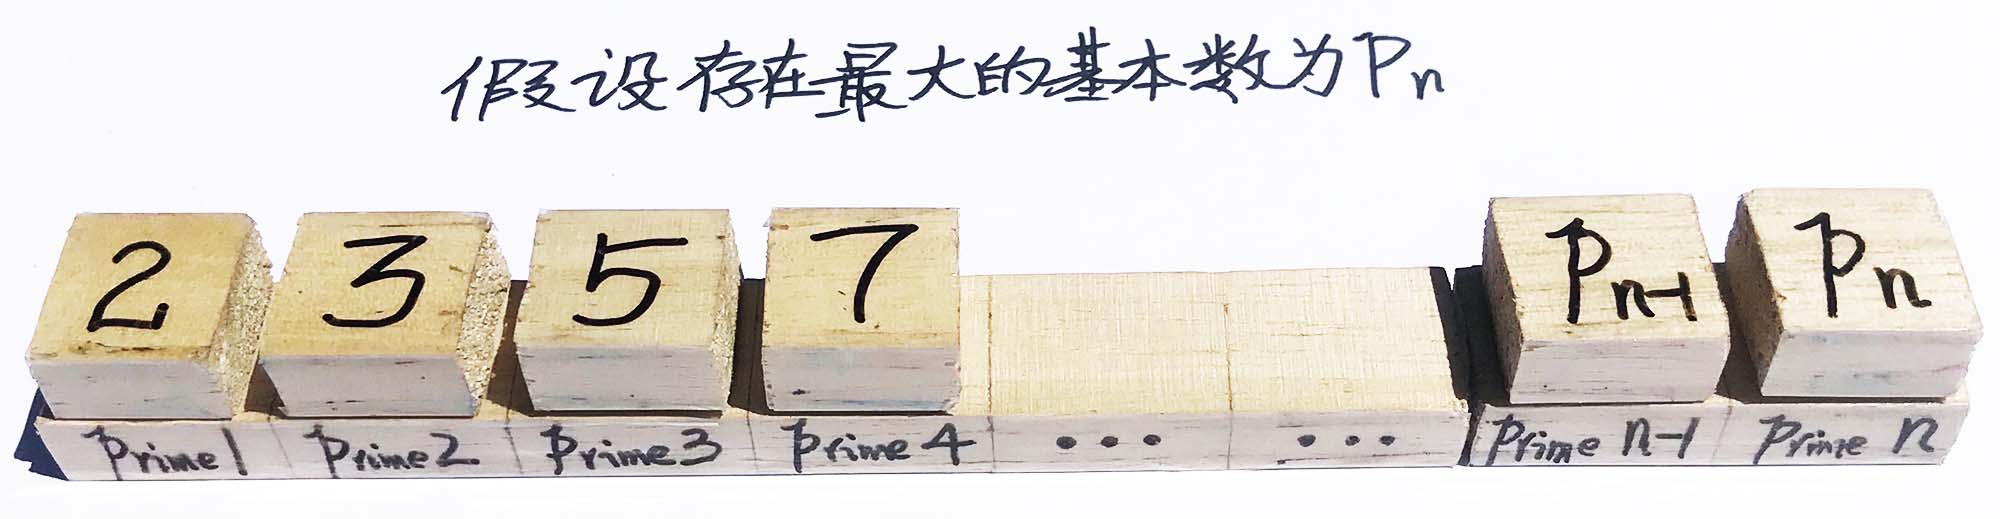 假设存在最大的基本数为Pn
2 3 5 7 Pn-1 Pn
Prime1 Prime2 Prime3 Prime4 ••• ••• Prime n-1 Prime n